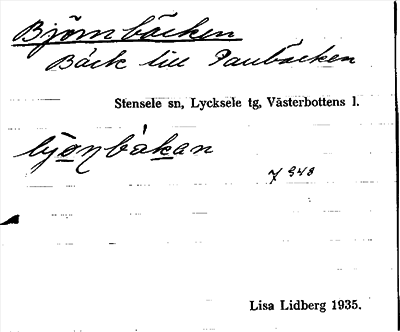 Björnbäcken
Bäck till Paubäcken
Stensele sn, Lycksele tg, Västerbottens l.
7 948
Lisa Lidberg 1935.